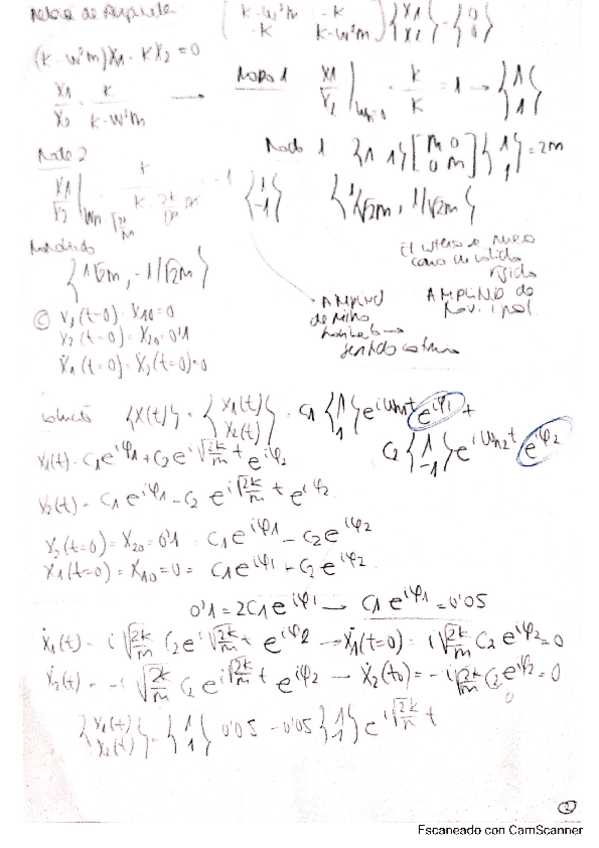 Relación de Amplitudes [k-w²m -k; -k k-w²m] {X1; X2} = {0; 0}
(k-w²m)X1 - kX2 = 0
X1/X2 = k/(k-w²m) → Modo 1 X1/X2 | wn=0 = k/k = 1 → {1; 1}
Modo 2
X1/X2 | = -1 {1; -1}
Modo 1 {1 1} [m 0; 0 m] {1; 1} = 2m
{1/√2m, 1/√2m}
{1/√2m, -1/√2m}
El
como un sólido
rígido
AMPLITUD de
AMPLITUD
sentido contrario
C) x1(t=0) = X10 = 0
x2(t=0) = X20 = 0'1
ẋ1(t=0) = ẋ2(t=0) = 0
solución {X(t)} = {x1(t); x2(t)} = C1 {1; 1} e^(iwn1t) e^(iφ1) +
C2 {1; -1} e^(iwn2t) e^(iφ2)
x1(t) = C1 e^(iφ1) + C2 e^(i√(2k/m) t) e^(iφ2)
x2(t) = C1 e^(iφ1) - C2 e^(i√(2k/m) t) e^(iφ2)
x2(t=0) = X20 = 0'1 = C1 e^(iφ1) - C2 e^(iφ2)
x1(t=0) = X10 = 0 = C1 e^(iφ1) - C2 e^(iφ2)
0'1 = 2C1 e^(iφ1) → C1 e^(iφ1) = 0'05
ẋ1(t) = i√(2k/m) C2 e^(i√(2k/m) t) e^(iφ2) → ẋ1(t=0) = i√(2k/m) C2 e^(iφ2) = 0
ẋ2(t) = -i√(2k/m) C2 e^(i√(2k/m) t) e^(iφ2) → ẋ2(t0) = -i√(2k/m) C2 e^(iφ2) = 0
{x1(t); x2(t)} = {1; 1} 0'05 - 0'05 {1; 1} e^(i√(2k/m) t)
2
Escaneado con CamScanner